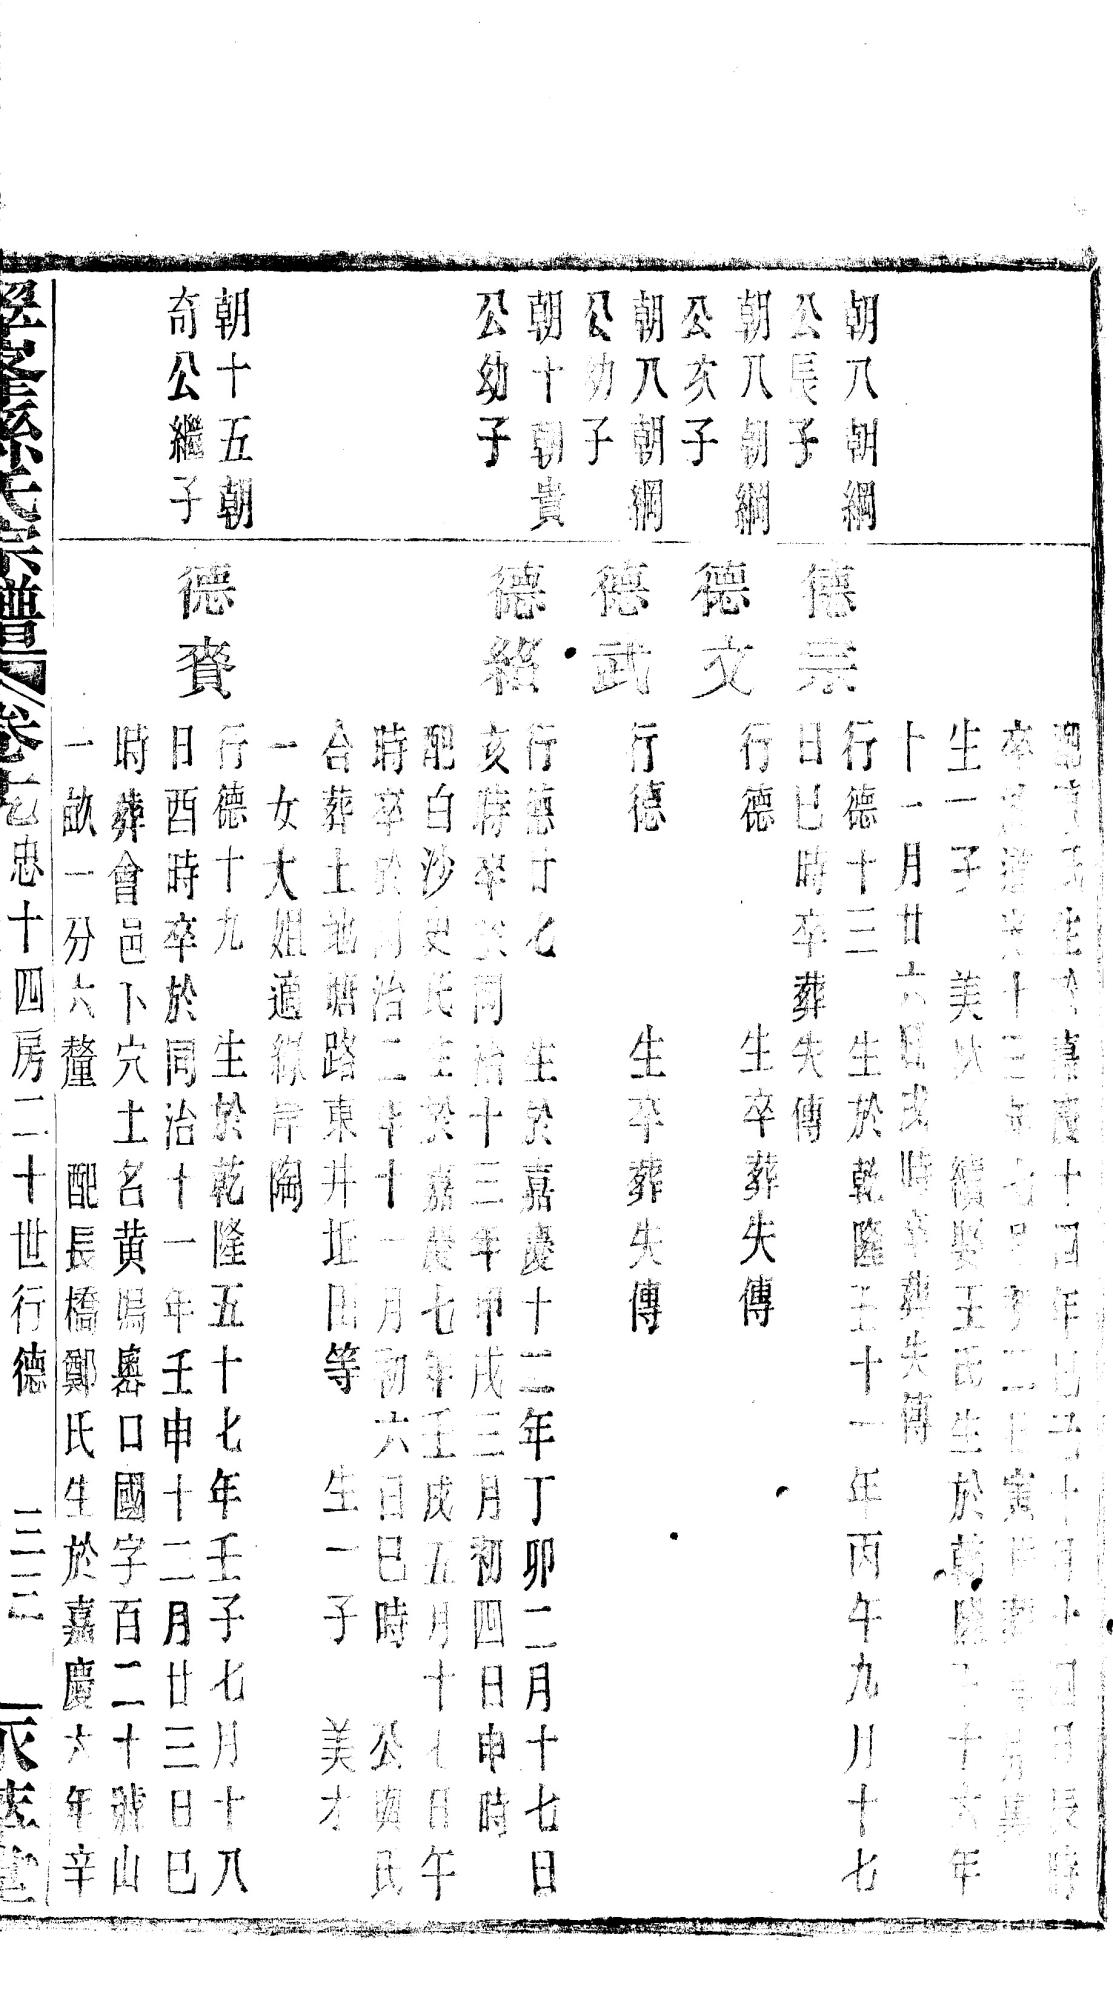 氏生於嘉慶十四年己巳十月十四日辰時
卒於道光十三年七月廿二日寅時
生一子 美狄 續娶王氏生於乾隆五十六年
十一月廿六日戌時卒葬失傳
朝八朝綱
公辰子
德宗
行德十三 生於乾隆五十一年丙午九月十七
日巳時卒葬失傳
朝八朝綱
公亥子
德文
行德 生卒葬失傳
朝八朝綱
公幼子
德武
行德 生卒葬失傳
朝十朝貴
公幼子
德紹
行德廿七 生於嘉慶十二年丁卯二月十七日
亥時卒於同治十三年甲戌三月初四日申時
配白沙史氏生於嘉慶七年壬戌五月十七日午
時卒於同治二年十一月初六日巳時 公與氏
合葬土地塘路東井坵田等 生一子 美才
一女大姐適綠岸陶
朝十五朝
奇公繼子
德賚
行德十九 生於乾隆五十七年壬子七月十八
日酉時卒於同治十一年壬申十二月廿三日巳
時葬會邑卜穴土名黃鳴嶴口國字百二十號山
一畝一分六釐 配長橋鄭氏生於嘉慶六年辛
孫氏宗譜 卷 忠十四房二十世行德 三三 堂